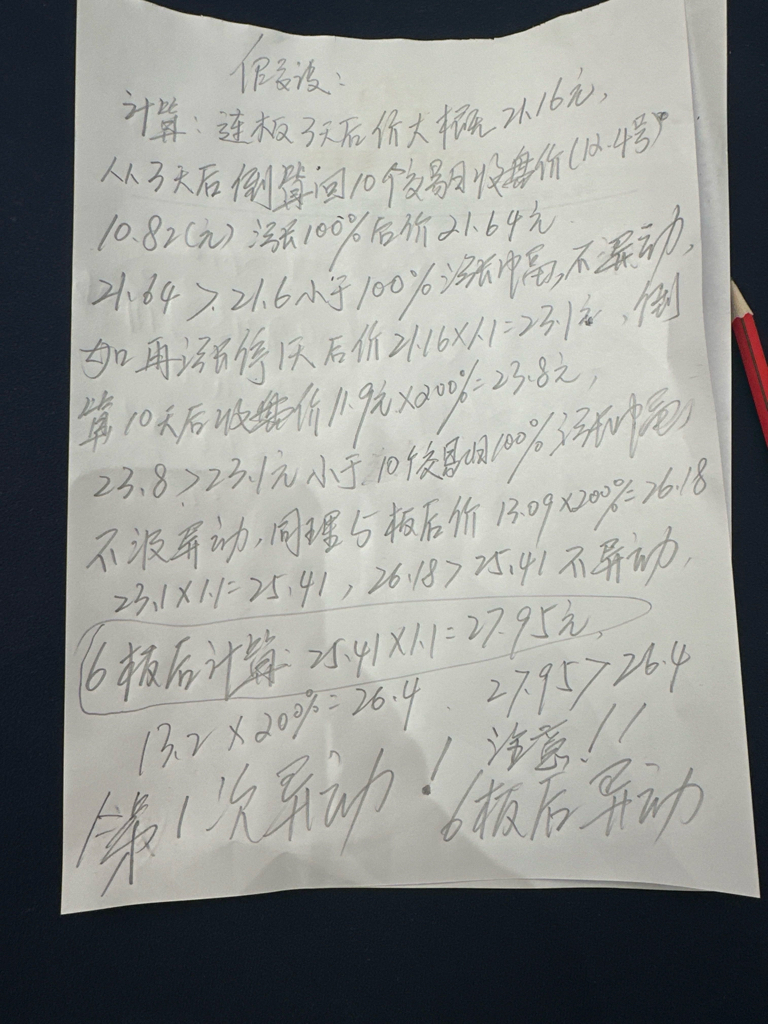 假设：
计算：连板3天后价大概21.16元，
从3天后倒算回10个交易日收盘价(12.4号)
10.82(元)涨100%后价21.64元
21.64>21.6小于100%涨幅,不异动,
如再涨停1天后价21.16×1.1=23.1元,倒
算10天后收盘价11.9元×200%=23.8元,
23.8>23.1元小于10个交易日100%涨幅,
不没异动,同理5板后价13.09×200%=26.18
23.1×1.1=25.41,26.18>25.41不异动,
6板后计算:25.41×1.1=27.95元,
13.2×200%=26.4 27.95>26.4
第1次异动! 注意!!
6板后异动